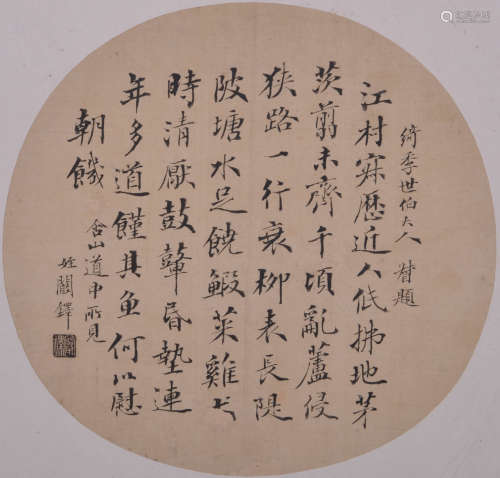 綺季世伯大人督題
江村寂歷近人低拂地茅
茨翦未齊千頃亂蘆侵
狹路一行衰柳表長隄
陂塘水足饒鰕菜雞犬
時清厭鼓鼙昏墊連
年多道饉其魚何以慰
朝饑
含山道中所見
姪闞鐸